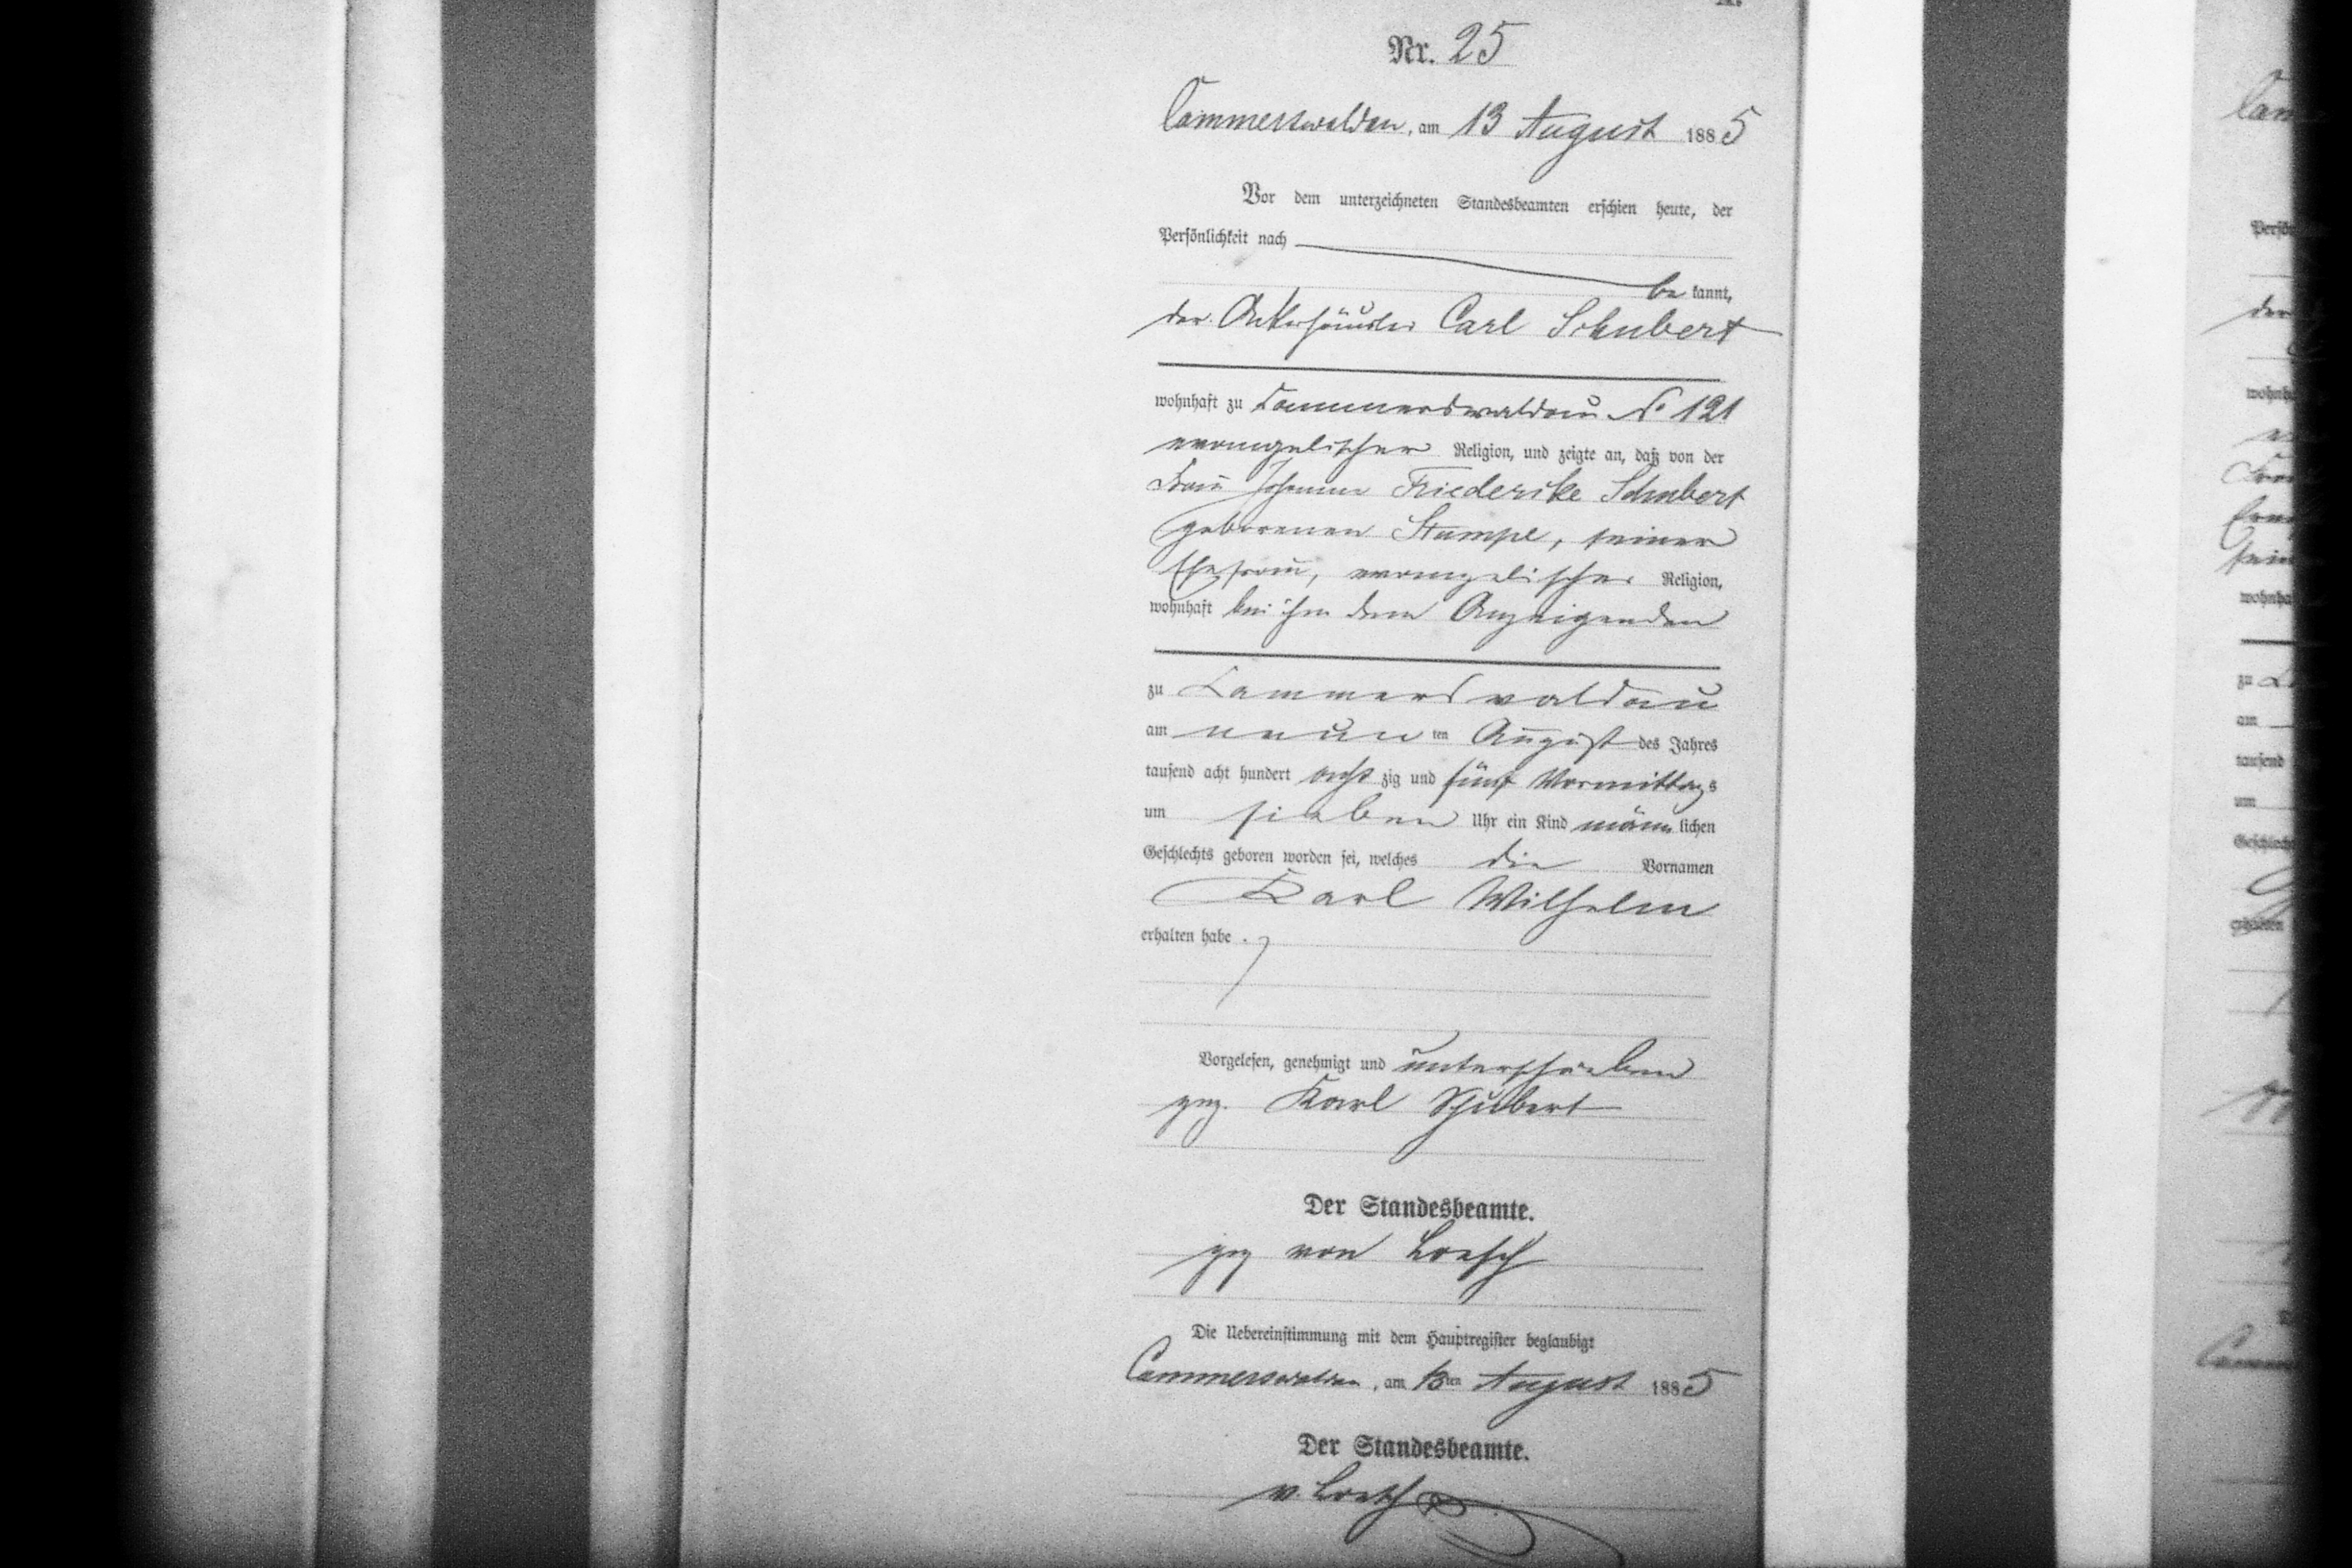 Nr. 25
Cammerswaldau, am 13 August 1885
Vor dem unterzeichneten Standesbeamten erschien heute, der
Persönlichkeit nach
be kannt,
der Ackerhäusler Carl Schubert
wohnhaft zu Cammerswaldau No 121
evangelischer Religion, und zeigte an, daß von der
Frau Johanne Friederike Schubert
geborenen Stumpe, seiner
Ehefrau, evangelischer Religion,
wohnhaft bei ihm dem Anzeigenden
zu Cammerswaldau
am neun ten August des Jahres
tausend acht hundert acht zig und fünf Vormittags
um sieben Uhr ein Kind männlichen
Geschlechts geboren worden sei, welches die Vornamen
Karl Wilhelm
erhalten habe.
Vorgelesen, genehmigt und unterschrieben
gez. Karl Schubert
Der Standesbeamte.
gez von Loesch
Die Uebereinstimmung mit dem Hauptregister beglaubigt
Cammerswaldau, am 13ten August 1885
Der Standesbeamte.
v. Loesch